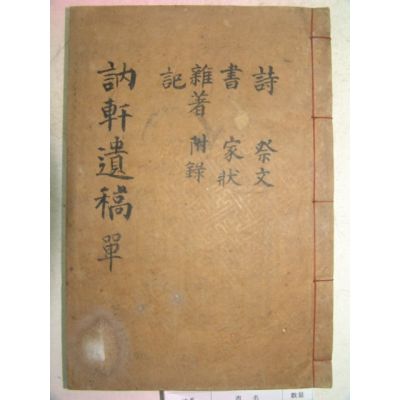 詩 祭文
書 家狀
雜著 附錄
記
訥軒遺稿 單
書 名